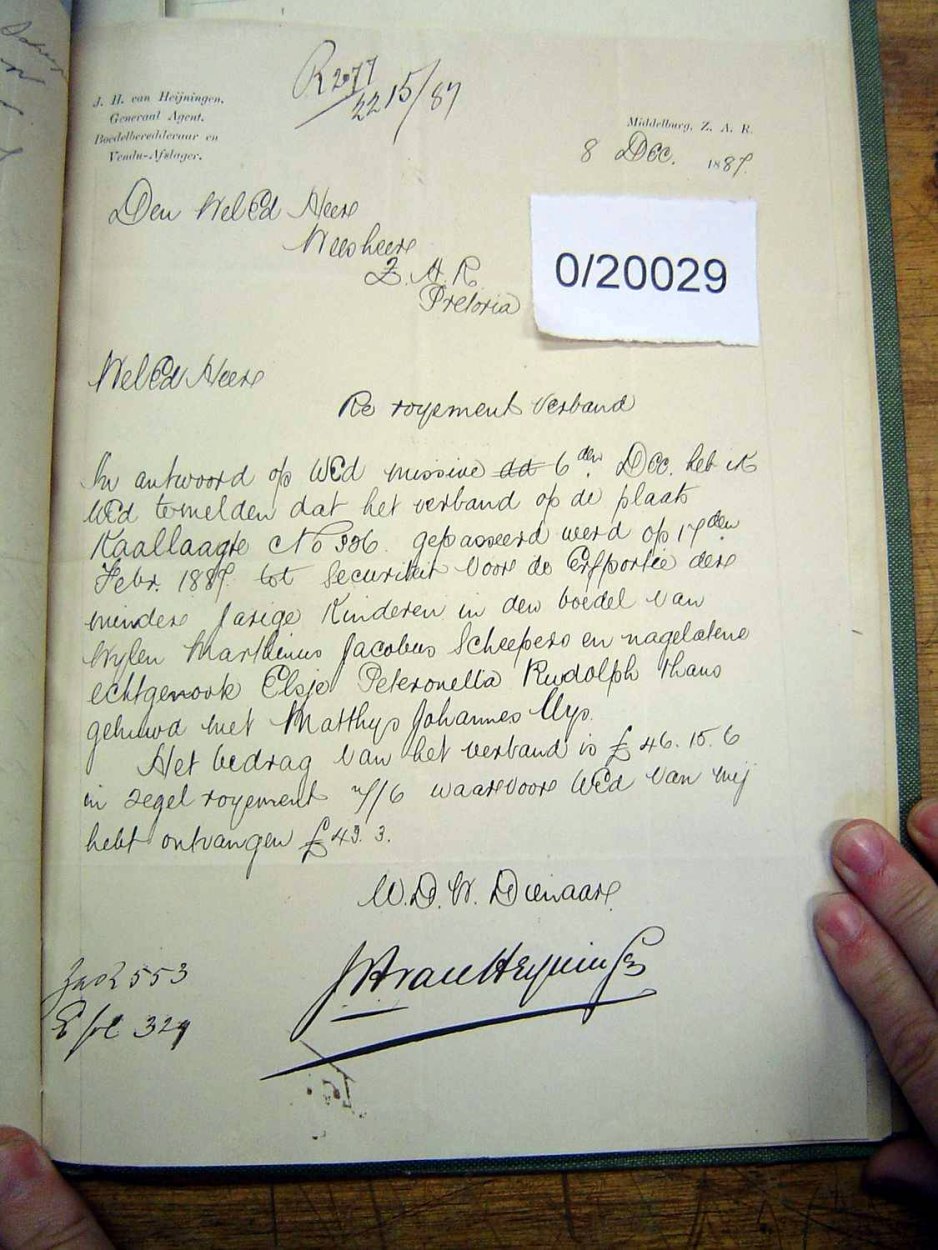 J. H. van Heijningen,
Generaal Agent.
Boedelberedderaar en
Vendu-Afslager.
R2077
2215/87
Middelburg, Z. A. R.
8 Dec. 1887.
Den WelEd Heere
Weesheere
Z. A. R.
Pretoria
0/20029
WelEd Heere
Re royement verband
In antwoord op WEd missive dd 6 den Dec. heb ik
WEd te melden dat het verband op de plaats
Kaallaagte No 306 gepasseerd werd op 17den
Febr. 1887. tot Securiteit voor de Erfportie der
minder jarige Kinderen in den boedel van
Wylen Marthinus Jacobus Scheepers en nagelatene
echtgenook Elsje Peteronella Rudolph thans
gehuwd met Matthys Johannes Uys.
Het bedrag van het verband is £ 46. 15. 6
in zegel royement 7/6 waarvoor WEd van mij
hebt ontvangen £ 49. 3.
W. D. W. Dienaar
JHvanHeyningen
553
329